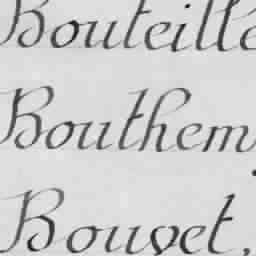 Bouteille
Bouthem
Bouvet,